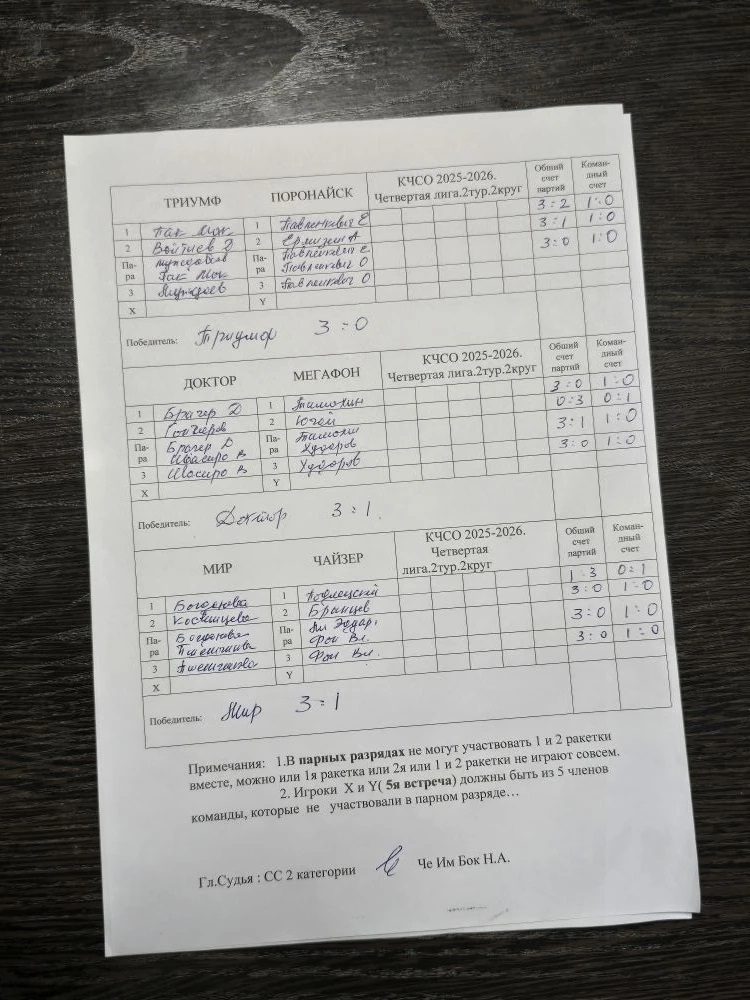 ТРИУМФ ПОРОНАЙСК КЧСО 2025-2026. Четвертая лига.2тур.2круг Общий счет партий Коман-дный счет
1 Пак 1 Павленкович Е 3:2 1:0
2 Войтиев 2 Ермизин А 3:1 1:0
Па-ра Па-ра Павленкович Е 3:0 1:0
Пак Павленкович О
3 3 Павленкович О
X Y
Победитель: Триумф 3:0
ДОКТОР МЕГАФОН КЧСО 2025-2026. Четвертая лига.2тур.2круг Общий счет партий Коман-дный счет
1 Брагер Д 1 Тимохин 3:0 1:0
2 Гончаров 2 0:3 0:1
Па-ра Брагер Д Па-ра 3:1 1:0
Шасиро В Худоров
3 Шасиро В 3 Худоров 3:0 1:0
X Y
Победитель: Доктор 3:1
МИР ЧАЙЗЕР КЧСО 2025-2026. Четвертая лига.2тур.2круг Общий счет партий Коман-дный счет
1 Богданова 1 1:3 0:1
2 2 Бранцев 3:0 1:0
Па-ра Богданова Па-ра 3:0 1:0
Фон Вл.
3 3 Фон Вл. 3:0 1:0
X Y
Победитель: Мир 3:1
Примечания: 1.В парных разрядах не могут участвовать 1 и 2 ракетки
вместе, можно или 1я ракетка или 2я или 1 и 2 ракетки не играют совсем.
2. Игроки X и Y( 5я встреча) должны быть из 5 членов
команды, которые не участвовали в парном разряде…
Гл.Судья : СС 2 категории Че Им Бок Н.А.